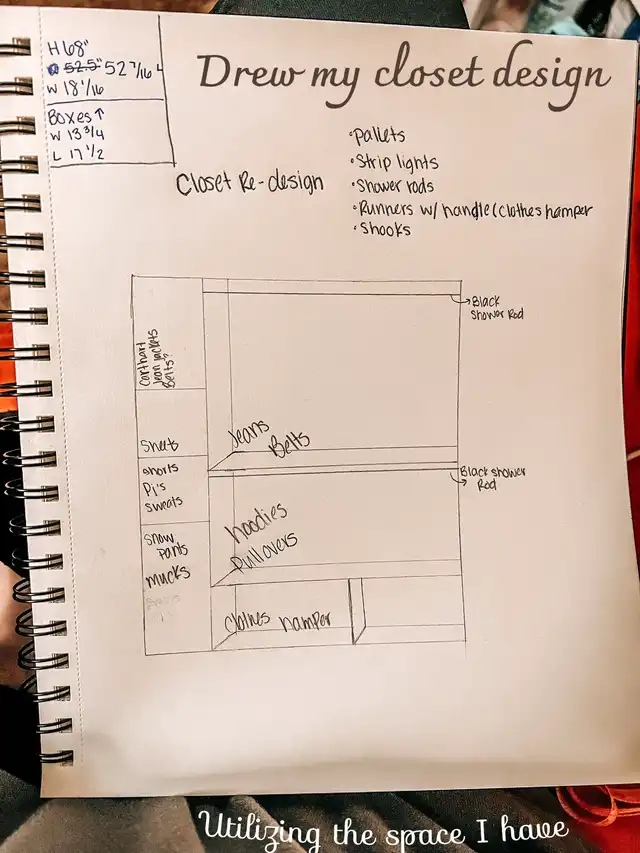 Drew my closet design
H 68"
52.5" 52 7/16 L
W 18 1/16
Boxes↑
W 13 3/4
L 17 1/2
•Pallets
•Strip lights
•Shower rods
•Runners w/ handle(clothes hamper
•Shooks
Closet Re-design
Black
Shower Rod
Carthart
Jean jackets
Belts?
Sheets
Jeans
Belts
Shorts
Pj's
Sweats
Black shower
Rod
Snow
pants
mucks
hoodies
Pullovers
Clothes hamper
Utilizing the space I have